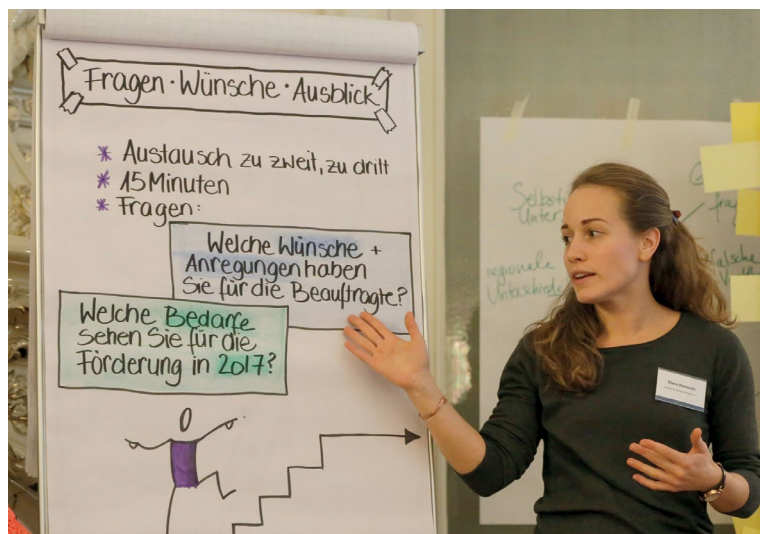 Fragen · Wünsche · Ausblick
* Austausch zu zweit, zu dritt
* 15 Minuten
* Fragen:
Welche Wünsche +
Anregungen haben
Sie für die Beauftragte?
Welche Bedarfe
sehen Sie für die
Förderung in 2017?
regionale
Unterschiede